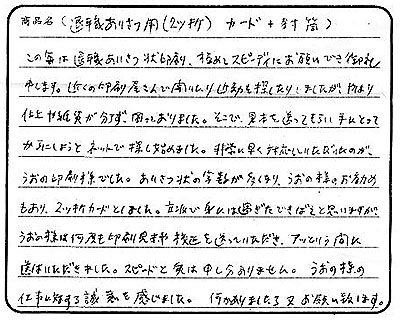 商品名(退職あいさつ用(2ツ折) カード+封筒)
この度は退職あいさつ状印刷、極めてスピーディにお願いでき御礼
申します。近くの印刷屋さんで聞いたり近効を探したりしましたが、やはり
仕上や紙質が分ず困っておりました。そこで、見本を送ってもらい手にとって
から にしようと ネットで探し始めました。非常に早く対応していただいたのが、
うおの印刷様でした。あいさつ状の字数が多くなり、うおの様のお勧め
もあり、2ッ折カードとしました。立派で私には過ぎたできばえと思いますが
うおの様は何度も印刷見本や校正を送っていただき、アッという間に
送付いただきました。スピードと質は申し分ありません。うおの様の
仕事に対する誠意を感じました。何かありましたら又お願い致します。